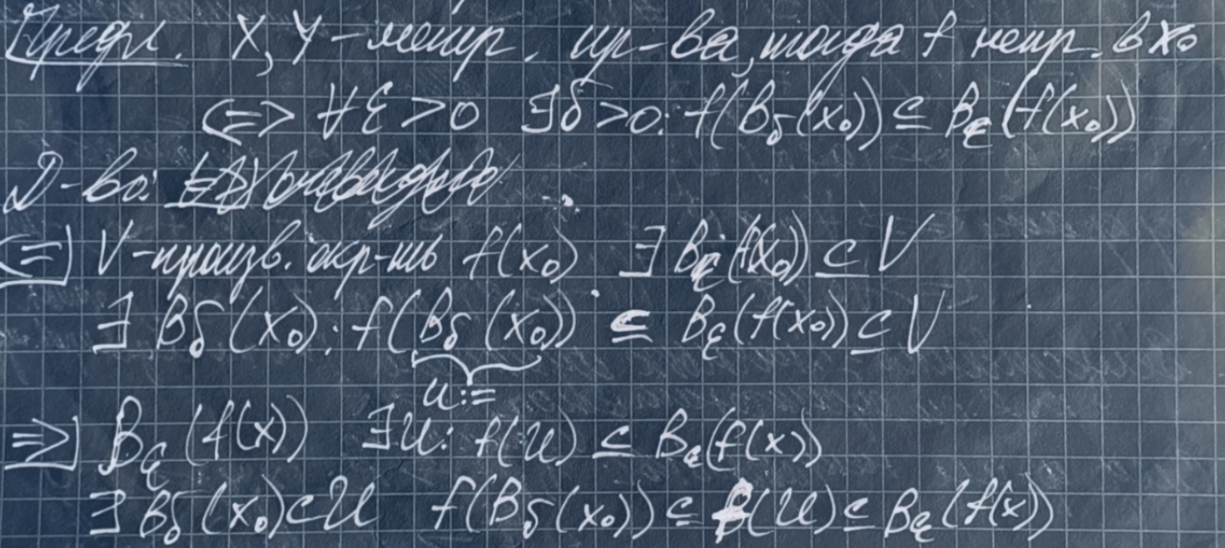 Предл. X, Y – метр. пр-ва, тогда f непр. в x₀
<=> ∀ε > 0 ∃δ > 0: f(B_δ(x₀)) ⊆ B_ε(f(x₀))
Д-во:
<=] V – произв. окр-ть f(x₀) ∃ B_ε(f(x₀)) ⊆ V
∃ B_δ(x₀): f(B_δ(x₀)) ⊆ B_ε(f(x₀)) ⊆ V
U:=
=>] B_ε(f(x)) ∃U: f(U) ⊆ B_ε(f(x))
∃ B_δ(x₀) ⊂ U f(B_δ(x₀)) ⊆ f(U) ⊆ B_ε(f(x))